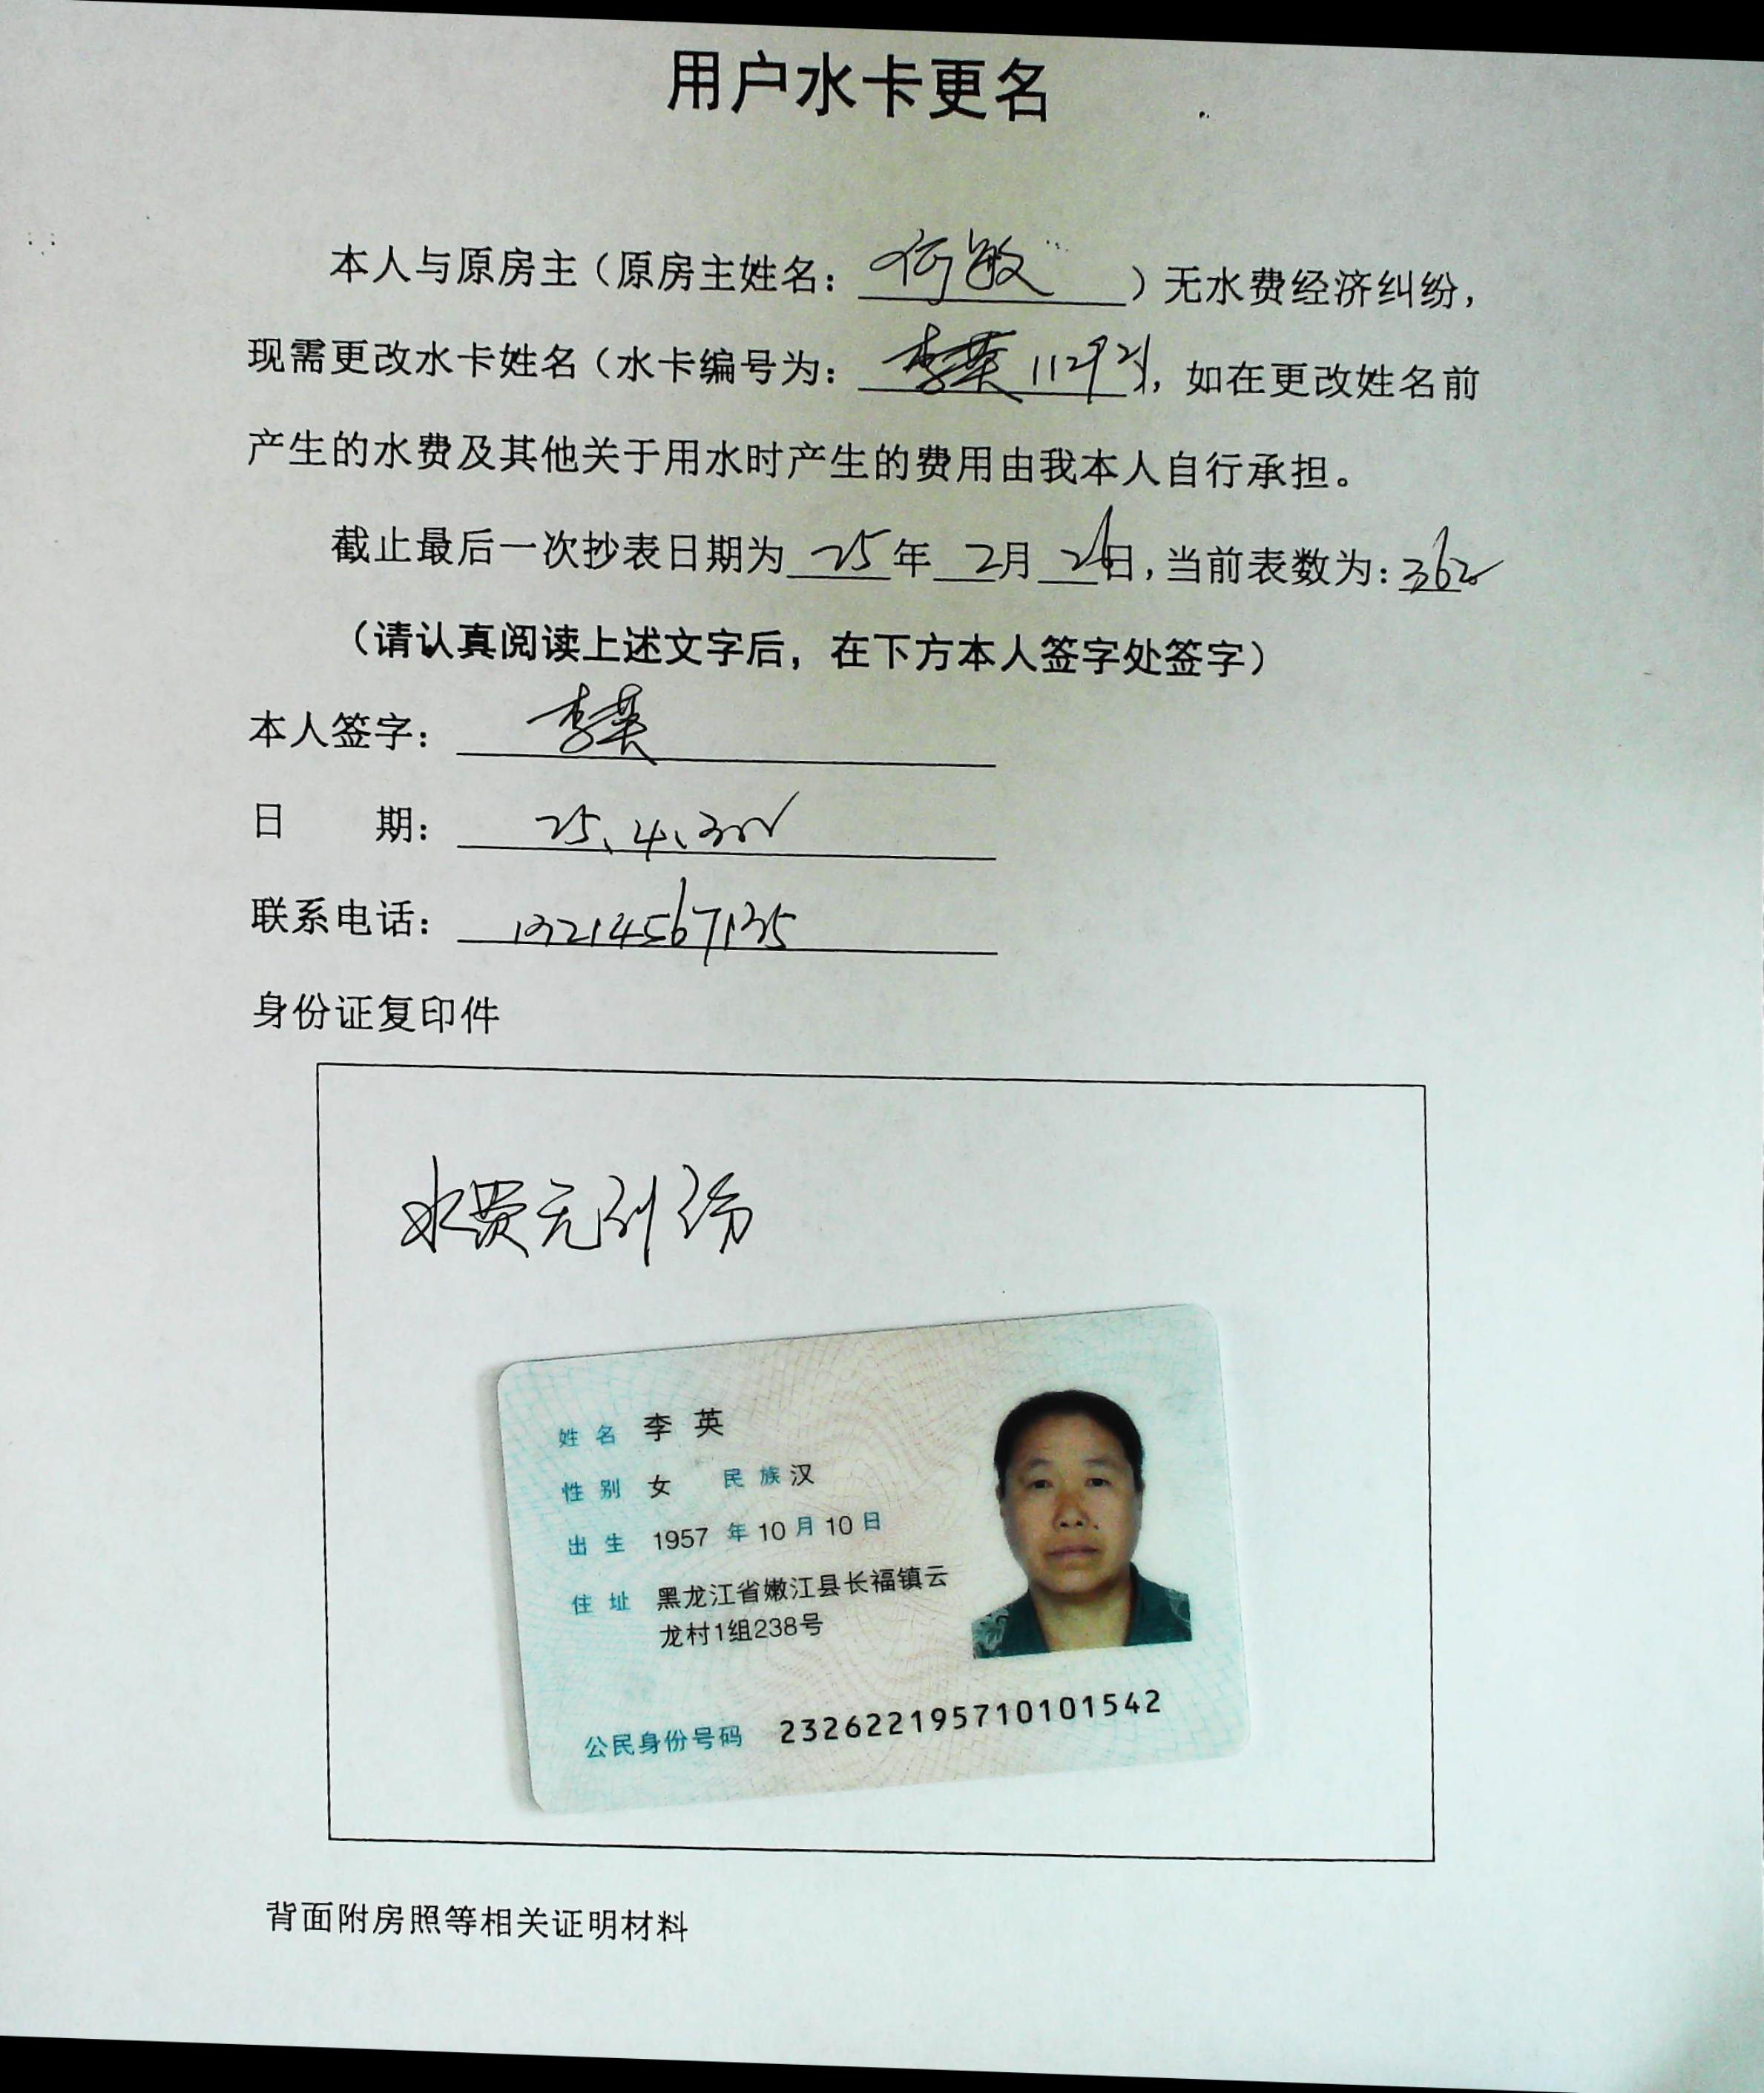 用户水卡更名
本人与原房主（原房主姓名：何敏）无水费经济纠纷，
现需更改水卡姓名（水卡编号为：李英 1129，如在更改姓名前
产生的水费及其他关于用水时产生的费用由我本人自行承担。
截止最后一次抄表日期为25年2月26日，当前表数为：362
（请认真阅读上述文字后，在下方本人签字处签字）
本人签字：李英
日 期：25、4、30
联系电话：13214567135
身份证复印件
水费无纠纷
姓名 李英
性别 女 民族 汉
出生 1957年10月10日
住址 黑龙江省嫩江县长福镇云
龙村1组238号
公民身份号码 232622195710101542
背面附房照等相关证明材料